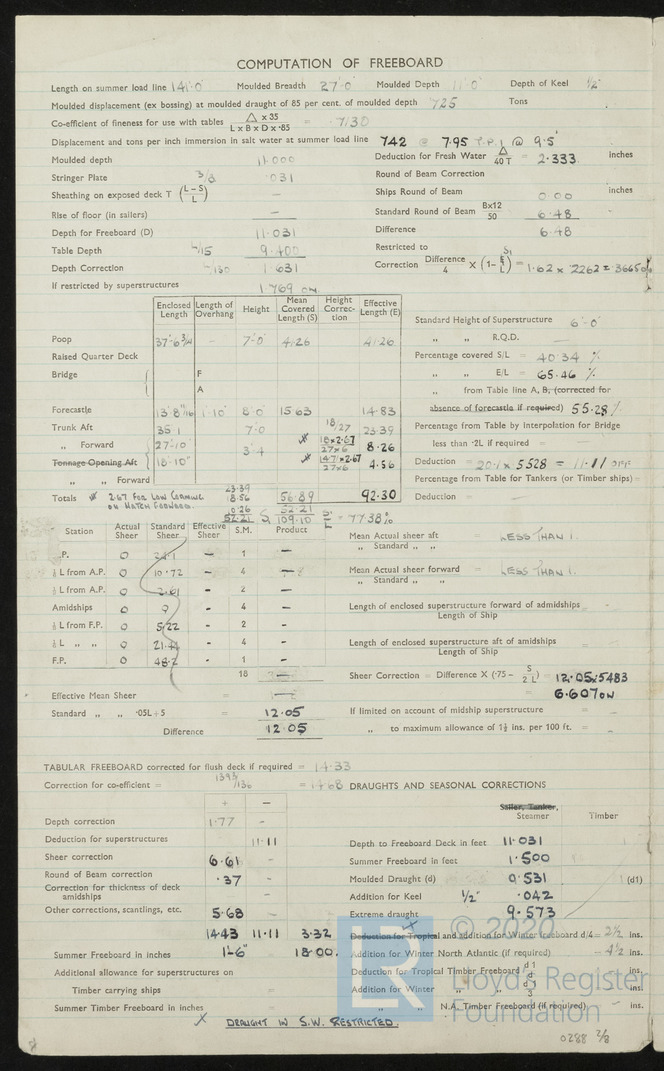 COMPUTATION OF FREEBOARD
Length on summer load line 141'·0" Moulded Breadth 27'·0" Moulded Depth 11'·0" Depth of Keel ½"
Moulded displacement (ex bossing) at moulded draught of 85 per cent. of moulded depth 725 Tons
Co-efficient of fineness for use with tables Δ x 35 / L x B x D x ·85 = ·7130
Displacement and tons per inch immersion in salt water at summer load line 742 @ 7.95 T.P.I @ 9·5'
Moulded depth 11·000 Deduction for Fresh Water Δ / 40 T = 2·333 inches
Stringer Plate 3/8 ·031 Round of Beam Correction
Sheathing on exposed deck T (L–S / L) — Ships Round of Beam 0·00 inches
Rise of floor (in sailers) — Standard Round of Beam Bx12 / 50 6·48
Depth for Freeboard (D) 11·031 Difference 6·48
Table Depth L/15 9·400 Restricted to
Depth Correction L/130 1·631 Correction Difference / 4 x (1– S1 / L) = 1·62 x ·2262 = ·3665 on
If restricted by superstructures 1·769 on.
Enclosed Length Length of Overhang Height Mean Covered Length (S) Height Correction Effective Length (E)
Standard Height of Superstructure 6'·0"
Poop 37'·6¾" – 7'·0" 41·26 41·26 „ „ R.Q.D. –
Raised Quarter Deck Percentage covered S/L = 40·34 %
Bridge F „ E/L = 65·46 %
A „ from Table line A, B, (corrected for
Forecastle 13'8 1'·10" 8'·0 15·63 14·83 absence of forecastle if required) 55·28%
Trunk Aft 35·1 7·0 18/27 23·39 Percentage from Table by Interpolation for Bridge
„ Forward 27'·10" 3'·4 18x2·67 / 27x6 8·26 less than ·2L if required = —
Tonnage Opening Aft 18'·10" 14·7x2·67 / 27x6 4·56 Deduction = 20·1 x 5528 = 11·11 OFF
„ „ Forward Percentage from Table for Tankers (or Timber ships) =
Totals 2·67 FOR LOW COAMING ON HATCH FORWARD. 56·89 92·30 Deduction = –
23·39
18·56
52·21
52·21
109·10 S/L = 77·38%
Station Actual Sheer Standard Sheer Effective Sheer S.M. Product
Mean Actual sheer aft / „ Standard „ „ = LESS THAN 1.
A.P. 0 24·1 – 1 –
⅙ L from A.P. 0 10·72 – 4 – Mean Actual sheer forward / „ Standard „ „ = LESS THAN 1.
⅓ L from A.P. 0 2·61 – 2 –
Amidships 0 0 – 4 – Length of enclosed superstructure forward of admidships / Length of Ship
⅓ L from F.P. 0 5·22 – 2 –
⅙ L „ „ 0 21·44 – 4 – Length of enclosed superstructure aft of amidships / Length of Ship =
F.P. 0 48·2 - 1 –
18 Sheer Correction = Difference X (·75 – S / 2 L) = 12·05x·5483
= 6·607 on
Effective Mean Sheer =
Standard „ „ ·05L+5 = 12·05 If limited on account of midship superstructure =
Difference 12·05 „ to maximum allowance of 1½ ins. per 100 ft. =
TABULAR FREEBOARD corrected for flush deck if required = 14·33
Correction for co-efficient = 1393/136 = 14·68 DRAUGHTS AND SEASONAL CORRECTIONS
+ –
Sailer, Tanker, Steamer Timber
Depth correction 1·77 -
Deduction for superstructures 11·11 Depth to Freeboard Deck in feet 11·031
Sheer correction 6·61 Summer Freeboard in feet 1·500
Round of Beam correction ·37 Moulded Draught (d) 9·531 (d1)
Correction for thickness of deck amidships Addition for Keel ½" ·042
Other corrections, scantlings, etc. 5·68 Extreme draught 9·573
© 2020
Lloyd's Register
Foundation
14·43 11·11 3·32 Deduction for Tropical and addition for Winter freeboard d/4 = 2½ ins.
Summer Freeboard in inches 1'–6" 18·00. Addition for Winter North Atlantic (if required) – 4½ ins.
Additional allowance for superstructures on Deduction for Tropical Timber Freeboard d1 / 4 ins.
Timber carrying ships Addition for Winter „ „ d1 / 3 ins.
Summer Timber Freeboard in inches „ „ N.A. Timber Freeboard (if required) – ins.
X DRAUGHT IN S.W. RESTRICTED.
0288 2/8